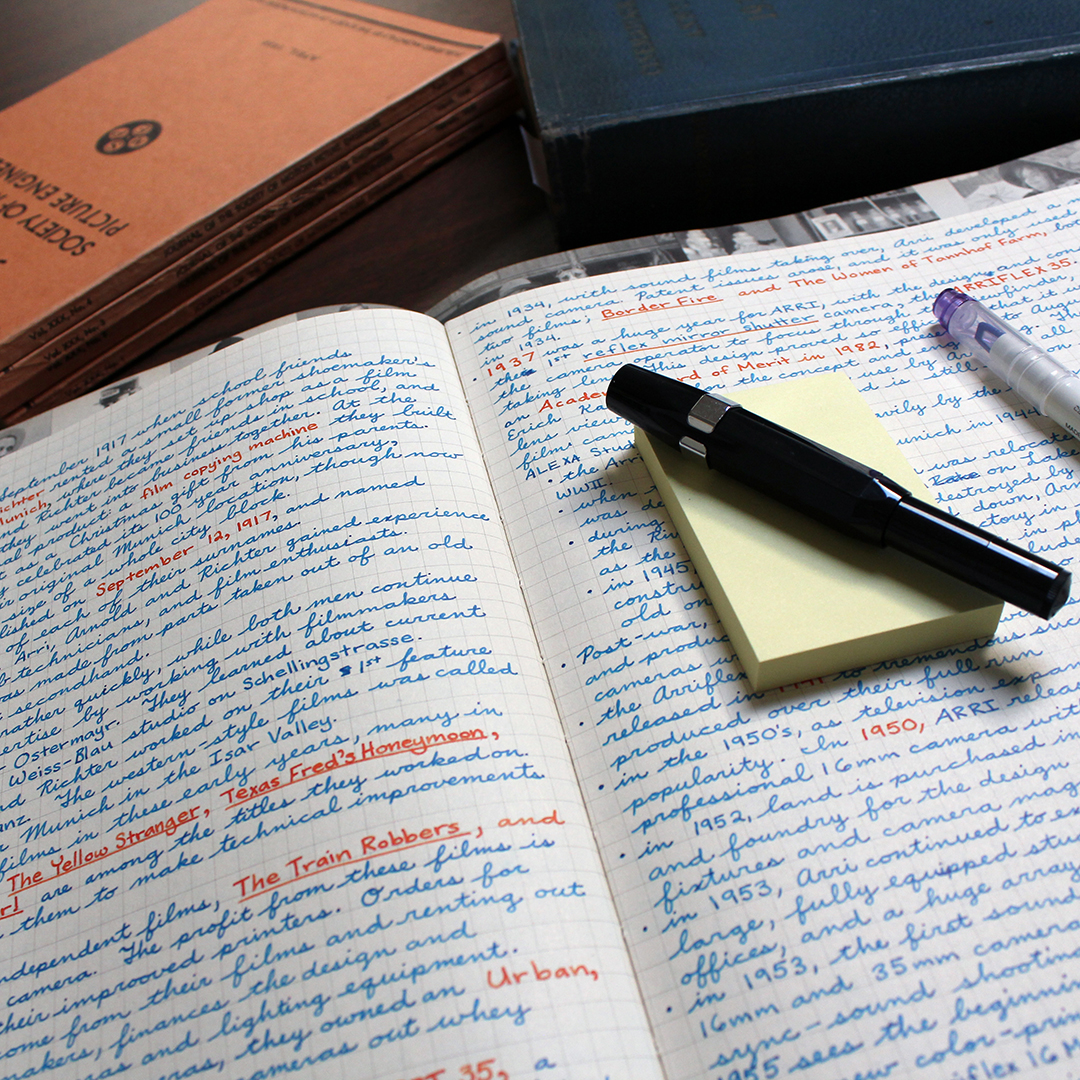 APRIL 1938
SOCIETY OF
PICTURE ENGINE
JOURNAL OF THE SOCIETY OF MOTION PICTURE
Vol. XXX, No. 4
Vol. XXX, No. 3
september 1917 when school friends
ichter rented a small former shoemaker's
Munich, where they set up shop as a film
nd Richter became friends in school, and
they went into business together. At the
al product: a film copying machine they built
t as a Christmas gift from his parents.
y celebrated its 100 year anniversary,
ir original Munich location, though now
size of a whole city block.
lished on September 12, 1917, and named
of each of their surnames.
Arri, Arnold and Richter gained experience
technicians, and film enthusiasts.
as made from parts taken out of an old
secondhand.
rather quickly, while both men continue
ertise by working with filmmakers
Ostermayr. They learned about current
Weiss-Blau studio on Schellingstrasse.
nd Richter worked on their 1st feature
anz. The western-style films was called
Munich in the Isar Valley.
films in these early years, many in
The Yellow Stranger, Texas Fred's Honeymoon,
rl are among the titles they worked on.
them to make technical improvements
ndependent films, The Train Robbers, and
camera. The profit from these films is
their improved printers. Orders for
come from their films and renting out
makers, finances the design and
as and lighting equipment.
ras, they owned an Urban,
cameras out whey
35, a
in 1934, with sound films taking over, Arri developed a
sound camera. Patent issues arose, and it was only used
two films, Border Fire and The Women of Tannhof Farm, bot
in 1934.
• 1937 was a huge year for ARRI, with the design and con
the 1st reflex mirror shutter camera, the ARRIFLEX 35.
the camera operator to focus through the finder,
taking lens. This design proved so effi that it
an Academy Award of Merit in 1982, pre
Erich Kä for the concept use and eng
lens view by Ar
film cam d is still
ALEXA Stud
• the Arr avily by the
WWII. unich in 1944
• when was relocate
was d on Lake
during destroyed
the Riv down, Ar
as the ctory in
• in 1945,
constr
old on
• Post-war,
and produc
cameras w
the Arriflex
released in to tremendo
produced over their full run
in the 1950's, as television expan
popularity. In 1950, ARRI relea
professional 16mm camera with
• in 1952, land is purchased in
and foundry for the design
fixtures and camera mag
• in 1953, Arri continued to e
large, fully equipped stu
offices, and a huge array
• in 1953, the first sound
16mm and 35mm camera
sync-sound shooting
1955 sees the beginnin
new color-prin
riflex 16 M